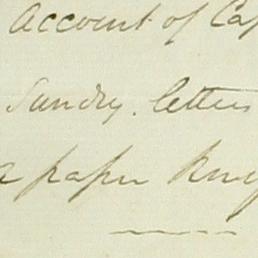 Account of Cap
Sundry. letters
a paper Knif